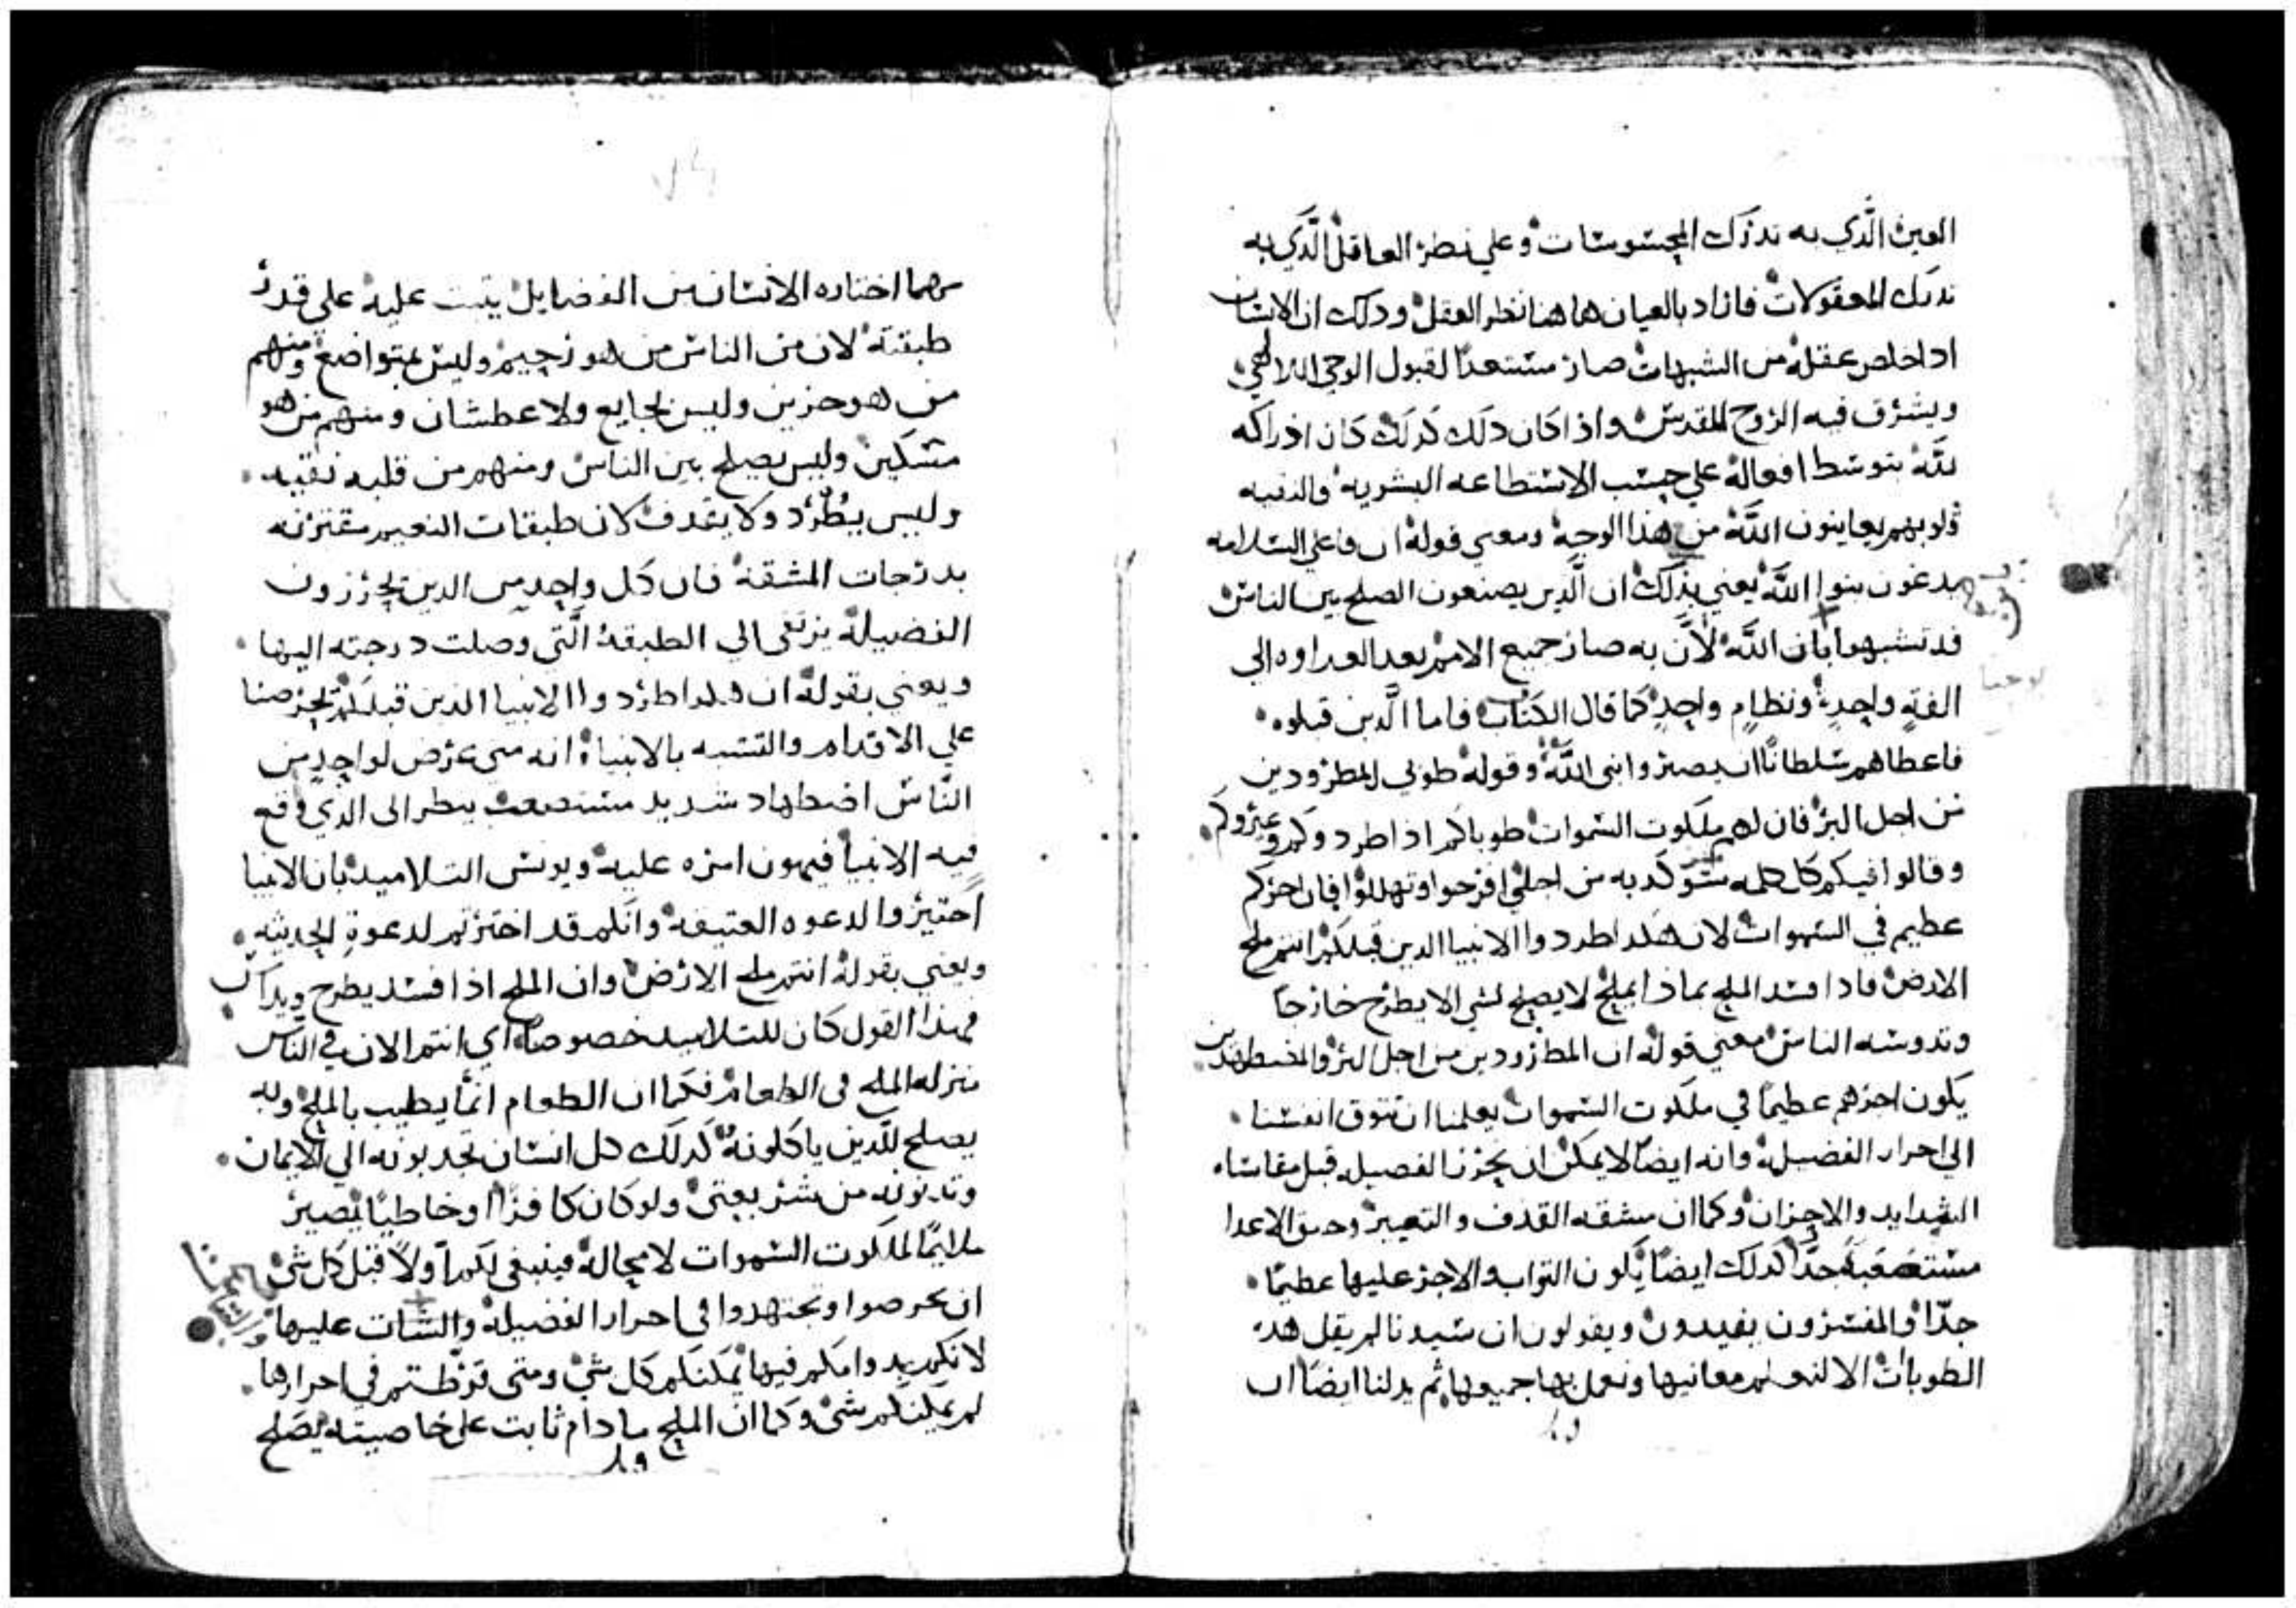 العين الذي به ندرك المحسوسات وعلي نظر العاقل الذي به
ندرك المعقولات فاراد بالعيان هاهنا نظر العقل ودلك ان الانسان
ادا خلص عقله من الشبهات صار مستعدًا لقبول الوحي الالاهي
ويشرق فيه الروح المقدس واذا كان دلك كدلك كان ادراكه
لله بتوسط افعاله علي حسب الاستطاعه البشريه والنقيه
قلوبهم يعاينون الله من هذا الوجه ومعني قوله ان فاعلي السلامه
يدعون بنوا الله يعني بذلك ان الذين يصنعون الصلح بين الناس
قد تشبهوا بابن الله لأن به صار جميع الامم بعد العداوه الي
الفةٍ واحدةٍ ونظامٍ واحدٍ كما قال الكتاب فاما الذين قبلوه
فاعطاهم سلطانًا ان يصيروا بني الله وقوله طوبي للمطرودين
من اجل البر فان لهم ملكوت السموات طوباكم اذا طردوكم وعيروكم
وقالوا فيكم كل كلمه سوّ كدبه من اجلي افرحوا وتهللوا فان اجركم
عظيم في السموات لان هكدا طردوا الانبيا الدين قبلكم انتم ملح
الارض فادا فسد الملح بماذا يملح لا يصلح لشي الا يطرح خارجًا
وتدوسه الناس معني قوله ان المطرودين من اجل البر والمضطهدين
يكون اجرهم عظيمًا في ملكوت السموات يعلمنا ان نتوق انفسنا
الي احراز الفضيله وانه ايضًا لا يمكن ان نحرز الفضيله قبل مقاساه
الشدايد والاحزان وكما ان مشقه القذف والتعيير الاعدا
مستصعبةً جدًّا كدلك ايضًا يكون التواب والاجر عليها عظيمًا
جدًّا والمفسرون يفيدون ويقولون ان سيدنا لم يقل هده
الطوبات الا لنعلم معانيها ونعمل بها جميعها ثم يدلنا ايضًا ان
مهما اختاره الانسان من الفضايل يثبت عليه علي قدر
طبقته لان من الناس من هو رحيم وليس بمتواضع ومنهم
من هو حزين وليس بجايع ولا عطشان ومنهم من هو
مسكين وليس يصلح بين الناس ومنهم من قلبه نقيه
وليس يُطرد ولا يقدف لان طبقات النعيم مقترنه
بدرجات المشقه فان كل واحدٍ من الدين يحرزون
الفضيلة يرتقي الي الطبقة التي وصلت درجته اليها
ويعني بقوله ان هكدا طردوا الانبيا الذين قبلكم يحرصنا
علي الاقدام والتشبه بالانبيا انه متي عرض لواحدٍ من
الناس اضطهاد شديد مستصعب ينظر الى الدي وقع
فيه الانبيا فيهون امره عليه ويونس التلاميد بان الانبيا
اختيروا لدعوه العتيقه وانكم قد اخترتم لدعوة الحديثه
ويعني بقوله انتم ملح الارض وان الملح اذا فسد يطرح ويداس
فهذا القول كان للتلاميد خصوصًا اي انتم الان في الناس
منزله الملح في الطعام فكما ان الطعام انما يطيب بالملح وبه
يصلح للذين ياكلونه كدلك كل انسان تجدبونه الي الايمان
من شر يعتق ولو كان كافرًا او خاطيًا يصير
ملايمًا لملكوت السموات لا محاله فينبغي لكم اولًا قبل كل شي
ان تحرصوا وتجتهدوا في احراز الفضيلة والثبات عليها
لانكم بدوامكم فيها يمكنكم كل شي ومتى فرّطتم في احرازها
لم يمكنكم شي وكما ان الملح ما دام ثابت على خاصيته يصلح